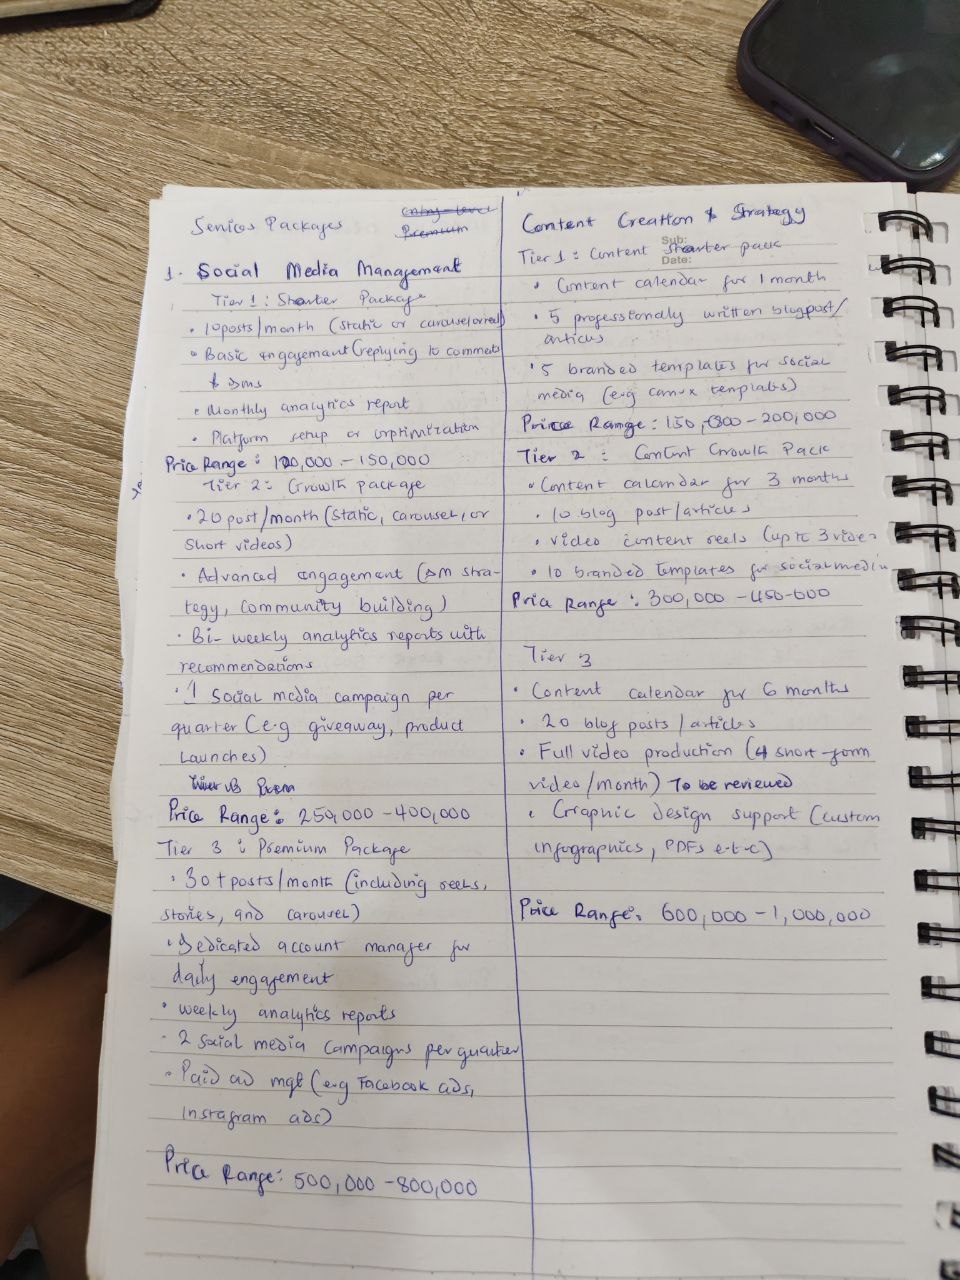 Service Packages
Entry-level
Premium
1. Social Media Management
Tier 1: Starter Package
• 10 posts/month (static or carousel or reel)
• Basic engagement (replying to comments
& DMs
• Monthly analytics report
• Platform setup or optimization
Price Range: 120,000 - 150,000
Tier 2: Growth package
• 20 post/month (static, carousel, or
short videos)
• Advanced engagement (DM stra-
tegy, community building)
• Bi-weekly analytics reports with
recommendations
• 1 Social media campaign per
quarter (e.g giveaway, product
Launches)
Price Range: 250,000 - 400,000
Tier 3: Premium Package
• 30+ posts/month (including reels,
stories, and carousel)
• Dedicated account manager for
daily engagement
• weekly analytics reports
• 2 social media campaigns per quarter
• Paid ad mgt (e.g Facebook ads,
Instagram ads)
Price Range: 500,000 - 800,000
Content Creation & Strategy
Sub:
Date:
Tier 1: Content Starter pack
• Content calendar for 1 month
• 5 professionally written blogpost/
articles
• 5 branded templates for social
media (e.g canva templates)
Price Range: 150,000 - 200,000
Tier 2: Content Growth Pack
• Content calendar for 3 months
• 10 blog post/articles
• video content reels (up to 3 video
• 10 branded templates for social media
Price Range: 300,000 - 450-000
Tier 3
• Content calendar for 6 months
• 20 blog posts/articles
• Full video production (4 short-form
video/month) To be reviewed
• Graphic design support (custom
infographics, PDFs e.t.c)
Price Range: 600,000 - 1,000,000